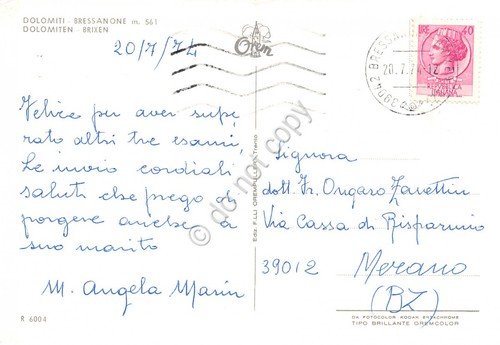 DOLOMITI - BRESSANONE m. 561
DOLOMITEN - BRIXEN
20/7/74
Orem
Felice per aver supe
rato altri tre esami,
Le invio cordiali
saluti che prego di
porgere anche a
suo marito
M. Angela Marin
R 6004
Ediz. F.LLI
Trento
LIRE 40
REPVBBLICA
ITALIANA
20.7.74-12
Signora
dott. Fr. Ongaro Zanettin
Via Cassa di Risparmio
39012 Merano
(BZ)
DA FOTOCOLOR KODAK EKTACHROME
TIPO BRILLANTE OREMCOLOR
do not copy